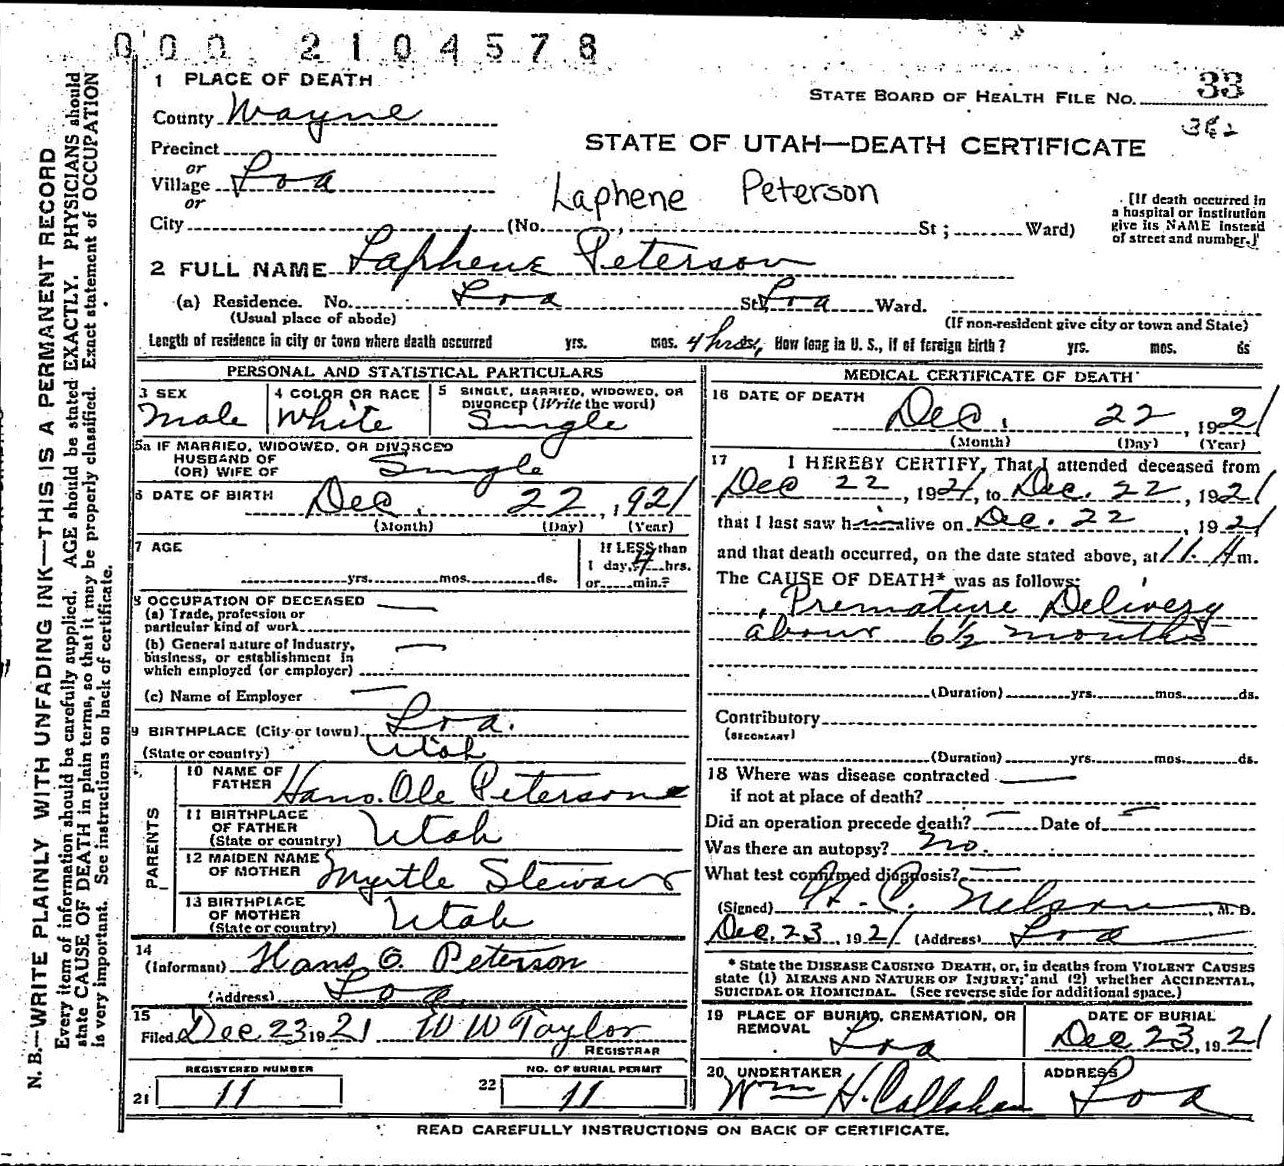 0 0 0 2 1 0 4 5 7 8
1 PLACE OF DEATH
STATE BOARD OF HEALTH FILE NO. 33
County Wayne
382
STATE OF UTAH—DEATH CERTIFICATE
Precinct
or
Village Loa
or
Laphene Peterson
City (No. St ; Ward)
[If death occurred in
a hospital or institution
give its NAME instead
of street and number.]
2 FULL NAME Laphene Peterson
(a) Residence. No. Loa St. Loa Ward.
(Usual place of abode) (If non-resident give city or town and State)
Length of residence in city or town where death occurred yrs. mos. 4 hrs, How long in U. S., if of foreign birth? yrs. mos. ds
PERSONAL AND STATISTICAL PARTICULARS
3 SEX 4 COLOR OR RACE 5 SINGLE, MARRIED, WIDOWED, OR
DIVORCED (Write the word)
Male White Single
5a IF MARRIED, WIDOWED, OR DIVORCED
HUSBAND OF
(OR) WIFE OF Single
6 DATE OF BIRTH Dec. 22, 1921
(Month) (Day) (Year)
7 AGE If LESS than
1 day, 4 hrs.
yrs. mos. ds. or min.?
8 OCCUPATION OF DECEASED —
(a) Trade, profession or
particular kind of work
(b) General nature of Industry, —
business, or establishment in
which employed (or employer)
(c) Name of Employer —
9 BIRTHPLACE (City or town) Loa.
(State or country) Utah
PARENTS
10 NAME OF
FATHER Hans. Ole Peterson
11 BIRTHPLACE
OF FATHER
(State or country) Utah
12 MAIDEN NAME
OF MOTHER Myrtle Stewart
13 BIRTHPLACE
OF MOTHER
(State or country) Utah
14
(Informant) Hans O. Peterson
(Address) Loa
15
Filed Dec 23 1921 W W Taylor
REGISTRAR
REGISTERED NUMBER NO. OF BURIAL PERMIT
21 11 22 11
MEDICAL CERTIFICATE OF DEATH
16 DATE OF DEATH
Dec. 22, 1921
(Month) (Day) (Year)
17 I HEREBY CERTIFY, That I attended deceased from
Dec 22, 1921, to Dec. 22, 1921
that I last saw him alive on Dec. 22, 1921
and that death occurred, on the date stated above, at 11 A m.
The CAUSE OF DEATH* was as follows:
Premature Delivery
about 6½ months
(Duration) yrs. mos. ds.
Contributory
(SECONDARY)
(Duration) yrs. mos. ds.
18 Where was disease contracted —
if not at place of death?
Did an operation precede death? — Date of —
Was there an autopsy? no.
What test confirmed diagnosis? —
(Signed) Nelson, M. D.
Dec. 23 1921 (Address) Loa
* State the DISEASE CAUSING DEATH, or, in deaths from VIOLENT CAUSES
state (1) MEANS AND NATURE OF INJURY; and (2) whether ACCIDENTAL,
SUICIDAL OR HOMICIDAL. (See reverse side for additional space.)
19 PLACE OF BURIAL, CREMATION, OR
REMOVAL Loa
DATE OF BURIAL
Dec 23, 1921
20 UNDERTAKER
Wm H. Callahan
ADDRESS
Loa
READ CAREFULLY INSTRUCTIONS ON BACK OF CERTIFICATE.
N. B.—WRITE PLAINLY WITH UNFADING INK—THIS IS A PERMANENT RECORD
Every item of information should be carefully supplied. AGE should be stated EXACTLY. PHYSICIANS should
state CAUSE OF DEATH in plain terms, so that it may be properly classified. Exact statement of OCCUPATION
is very important. See instructions on back of certificate.